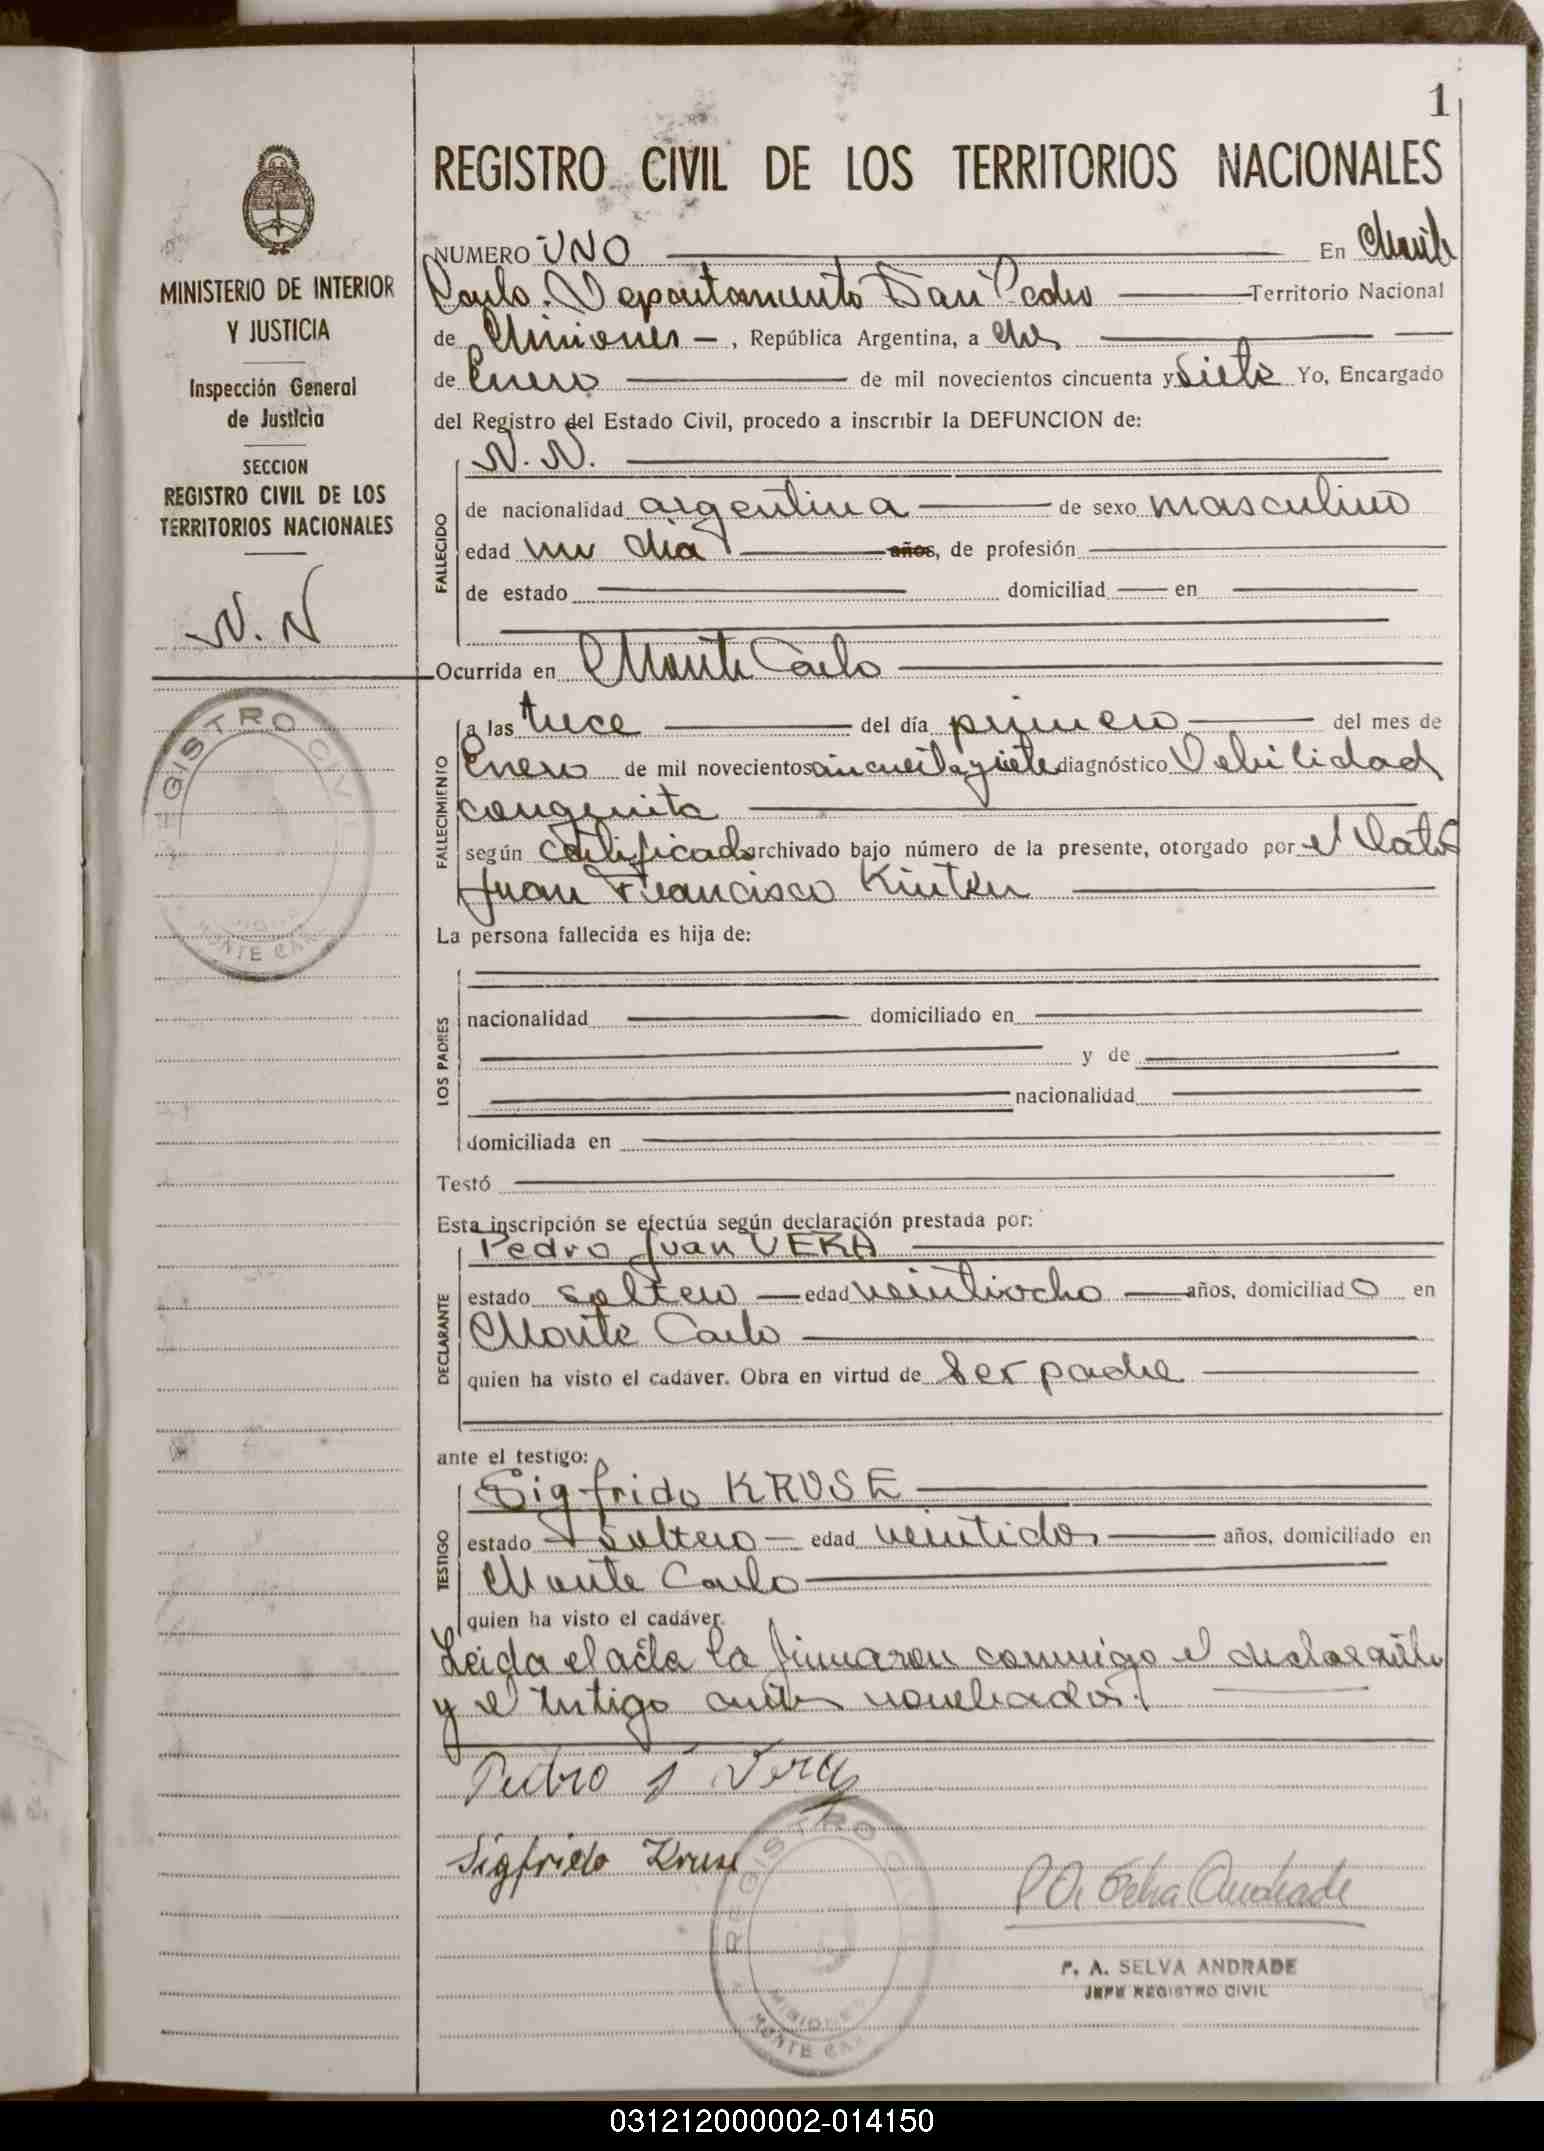 1
REGISTRO CIVIL DE LOS TERRITORIOS NACIONALES
MINISTERIO DE INTERIOR
Y JUSTICIA
Inspección General
de Justicia
SECCION
REGISTRO CIVIL DE LOS
TERRITORIOS NACIONALES
N. N
REGISTRO CIVIL
MONTE CAR
NUMERO UNO En Monte
Carlo. Departamento San Pedro Territorio Nacional
de Misiones - , República Argentina, a dos
de Enero de mil novecientos cincuenta y siete Yo, Encargado
del Registro del Estado Civil, procedo a inscribir la DEFUNCION de:
N. N.
FALLECIDO
de nacionalidad argentina de sexo masculino
edad un dia años, de profesión
de estado domiciliad en
Ocurrida en Monte Carlo
FALLECIMIENTO
a las trece del día primero del mes de
Enero de mil novecientos cincuenta y siete diagnóstico Debilidad
congenita
según certificado archivado bajo número de la presente, otorgado por el
Juan Francisco
La persona fallecida es hija de:
LOS PADRES
nacionalidad domiciliado en
y de
nacionalidad
domiciliada en
Testó
Esta inscripción se efectúa según declaración prestada por:
Pedro Juan VERA
DECLARANTE
estado soltero edad veintiocho años, domiciliad o en
Monte Carlo
quien ha visto el cadáver. Obra en virtud de ser padre
ante el testigo:
Sigfrido KRUSE
TESTIGO
estado soltero - edad veintidos años, domiciliado en
Monte Carlo
quien ha visto el cadáver.
Leida el acta la firmaron conmigo el declarante
y el testigo antes nombrados.
Pedro J Vera
Sigfrido Kruse
REGISTRO CIVIL
MISIONES
MONTE CAR
P. A. Selva Andrade
P. A. SELVA ANDRADE
JEFE REGISTRO CIVIL
031212000002-014150